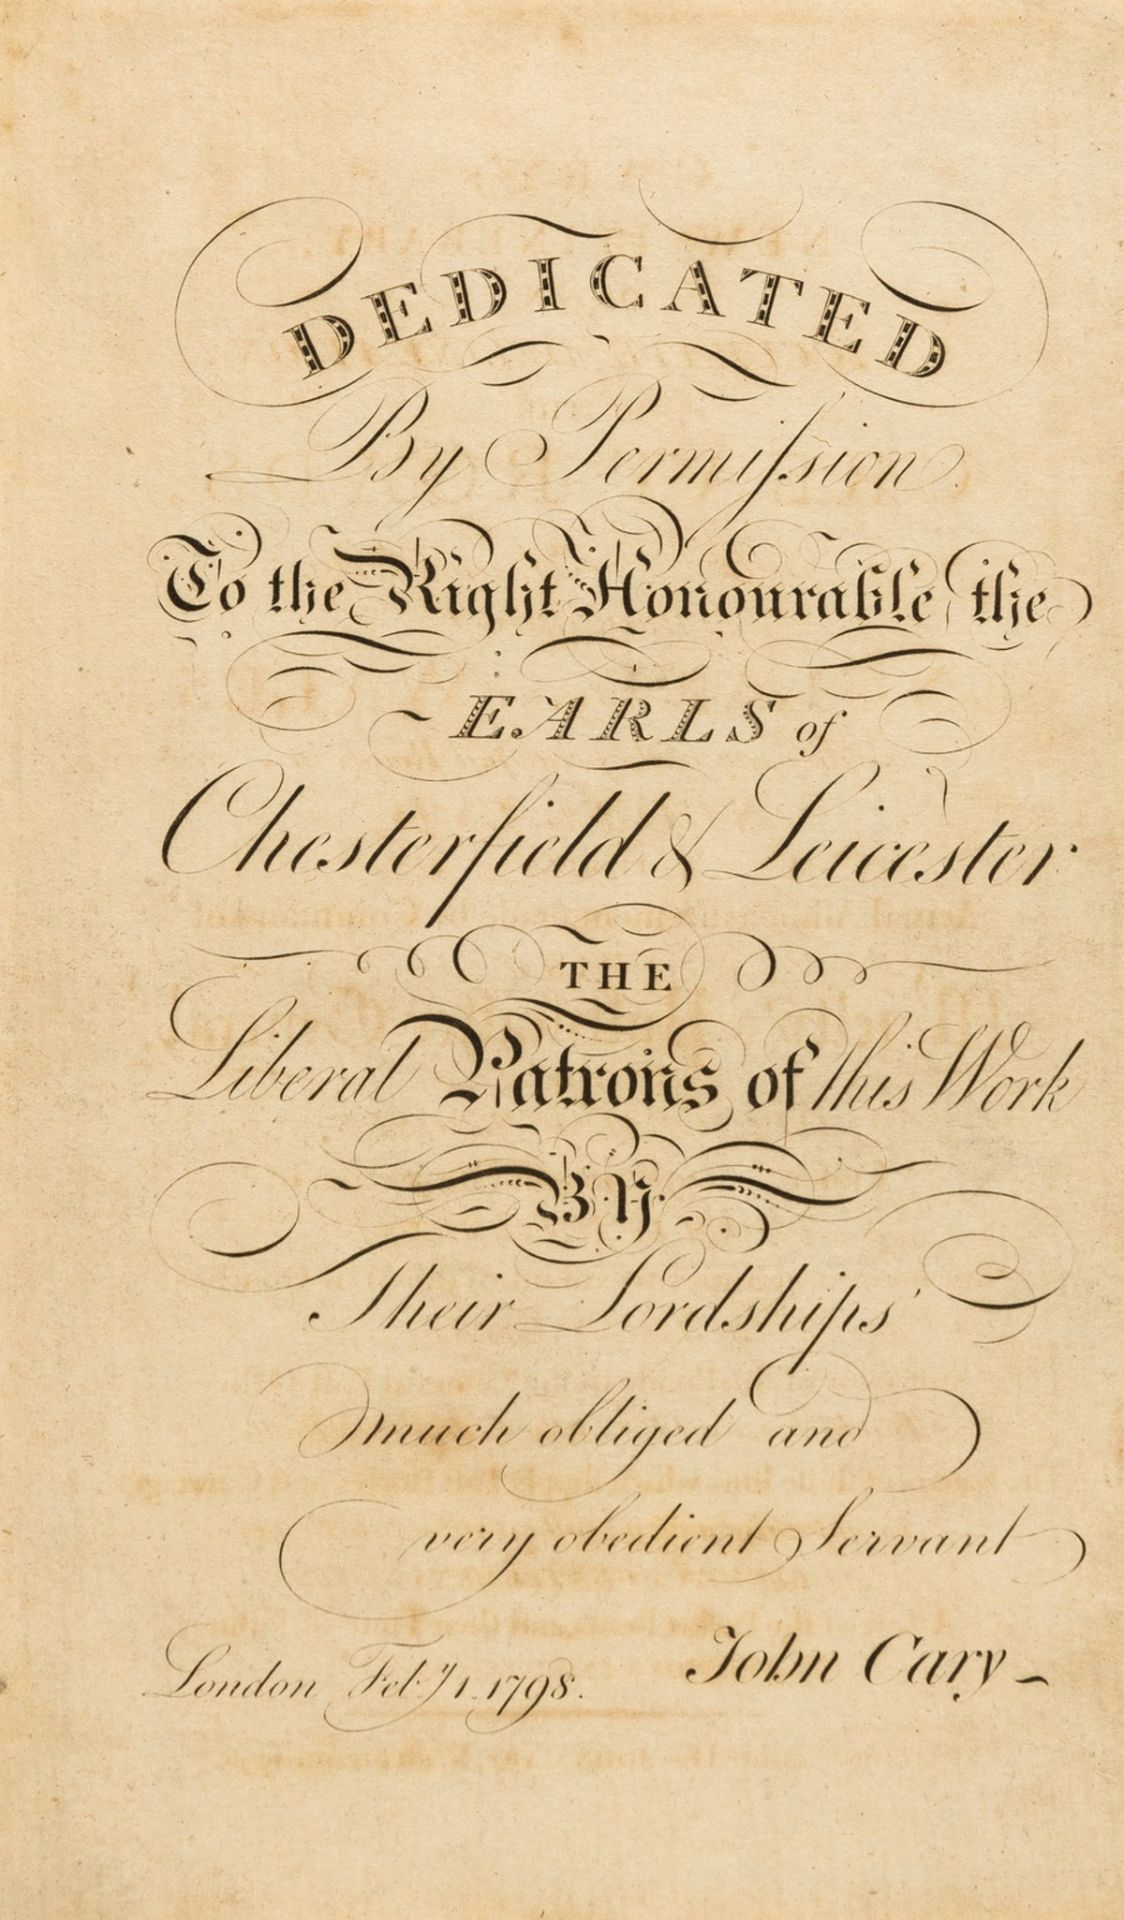 DEDICATED
By Permiſsion
To the Right Honourable the
EARLS of
Chesterfield & Leicester
THE
Liberal Patrons of this Work
BY
Their Lordships'
much obliged and
very obedient Servant
John Cary
London Feb.y 1. 1798.